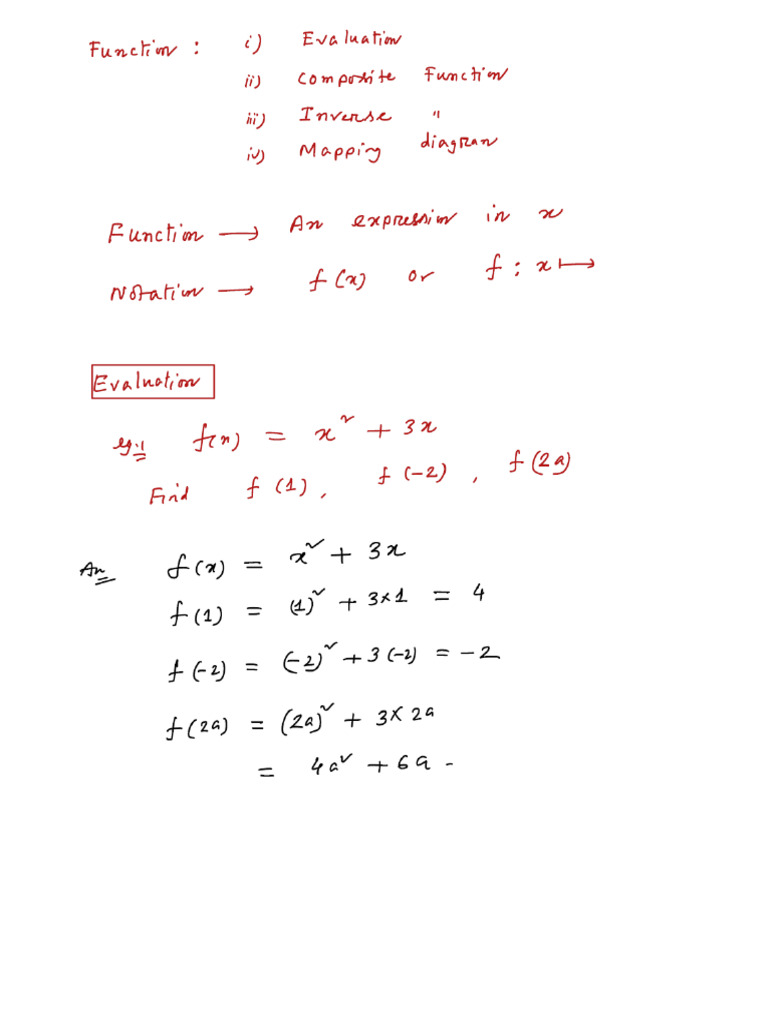 Function : i) Evaluation
ii) Composite Function
iii) Inverse "
iv) Mapping diagram
Function → An expression in x
Notation → f(x) or f : x ↦
Evaluation
eg.1 f(x) = x² + 3x
Find f(1), f(-2), f(2a)
An f(x) = x² + 3x
f(1) = (1)² + 3×1 = 4
f(-2) = (-2)² + 3(-2) = -2
f(2a) = (2a)² + 3×2a
= 4a² + 6a .